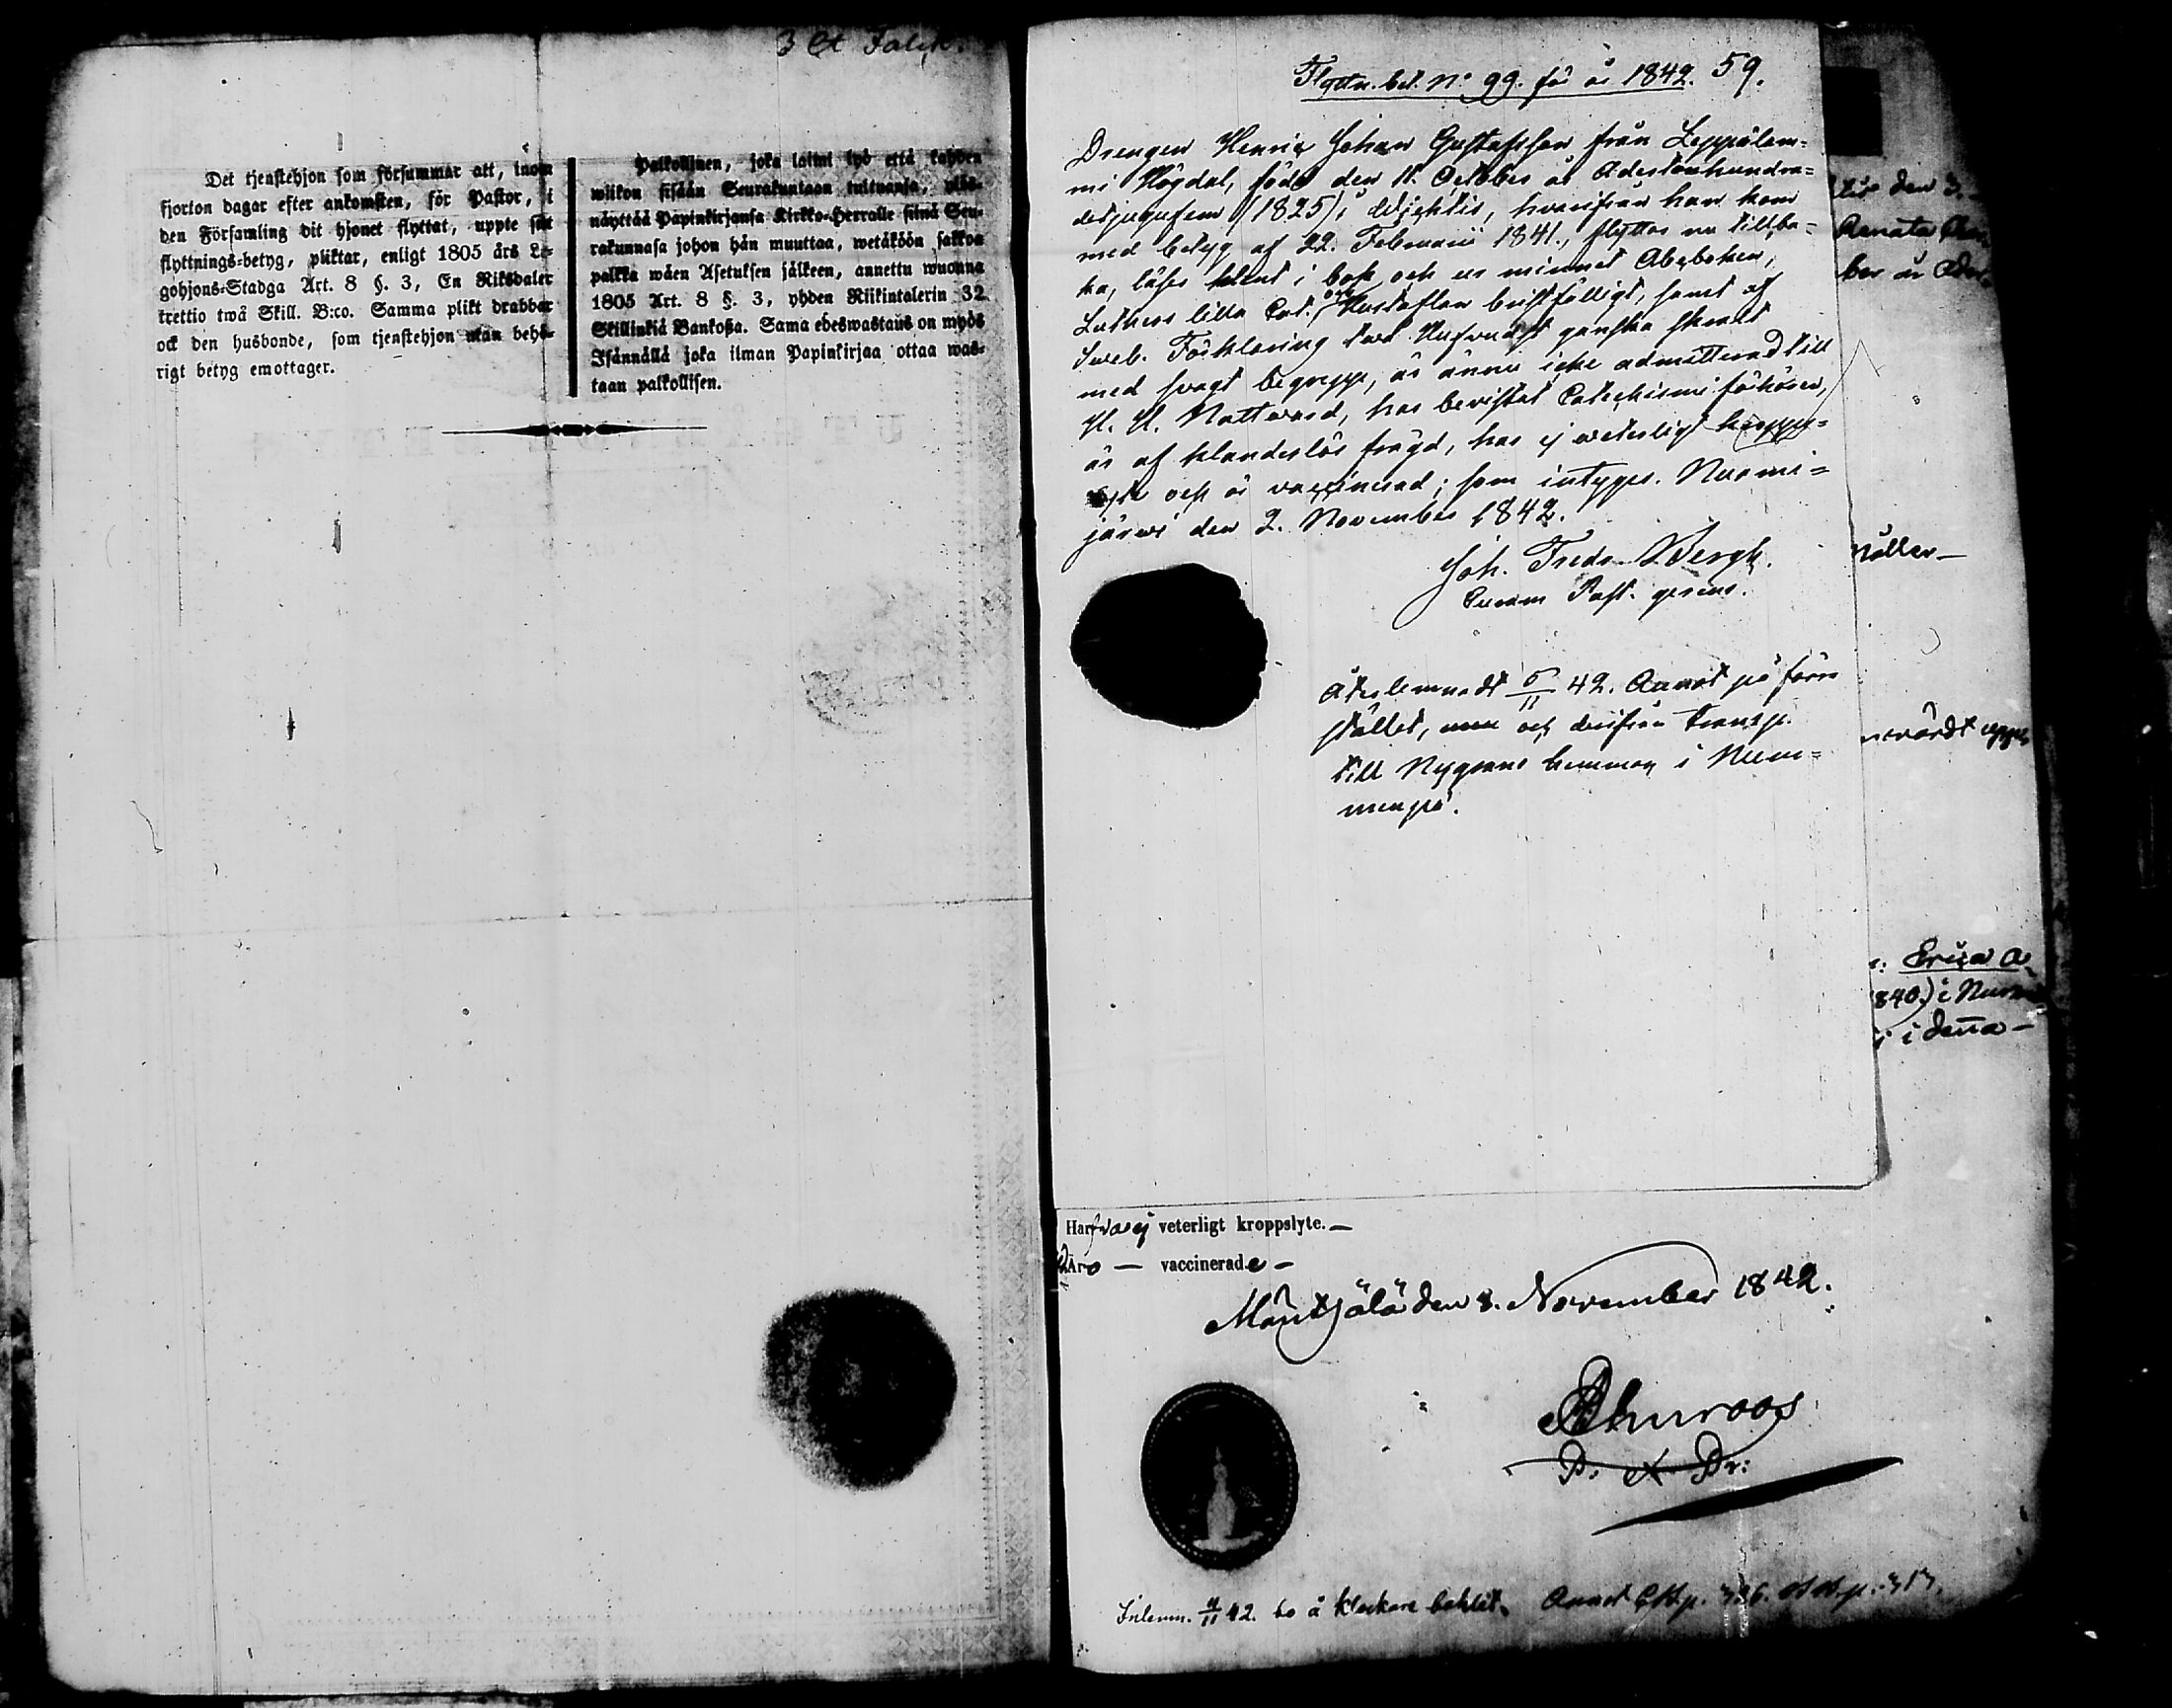 3 Ct Falck.
Det tjenstehjon som försummar att, inom
fjorton dagar efter ankomsten, för Pastor, i
den Församling dit hjonet flyttat, uppte sitt
flyttnings-betyg, pliktar, enligt 1805 års Le-
gohjons-Stadga Art. 8 §. 3, En Riksdaler
trettio twå Skill. B:co. Samma plikt drabbar
ock den husbonde, som tjenstehjon utan behö-
rigt betyg emottager.
Palkollinen, joka laimi lyö että kahden
wiikon sisään Seurakuntaan tultuansa, ylös-
näyttää Papinkirjansa Kirkko-Herralle siinä Seu-
rakunnasa johon hän muuttaa, wetäköön sakkoa
palkka wäen Asetuksen jälkeen, annettu wuonna
1805 Art. 8 §. 3, yhden Riikintalerin 32
Skillinkiä Bankoßa. Sama edeswastaus on myös
Isännällä joka ilman Papinkirjaa ottaa was-
taan palkollisen.
Flyttn. bet. No 99. för år 1842. 59.
Drengen Henric Johan Gustafsson från Leppälam-
mi Högdal, född den 11. October år Adertonhundra-
detjugufem (1825) i Wichtis, hvarifrån han kom
med betyg af 22. Februarii 1841., flyttar nu tillba-
ka, läser klent i bok och ur minnet Abcboken,
Luthers lilla Cat. och Hustaflan bristfälligt, samt af
Sveb. Förklaring ganska
med svagt begrepp, är ännu icke admitterad till
H. H. Nattvard, har bevistat Catechismi förhören,
är af klanderlös frägd, har ej veterligt kropps-
lyte och är vaccinerad; som intygas. Nurmi-
järvi den 2. November 1842.
Joh. Fredr. Bergh.
Curam Past. gerens.
Återlemnadt 5/11 42. Annot på förra
stället, och derifrån transp.
till Nygrens hemman i Num-
menpä.
ber år Ader-
1840) i Nurmi
i denna -
Har ej veterligt kroppslyte. -
Är - vaccinerade -
Mäntsälä den 8. November 1842.
Inlemn. 42. klockare Annot